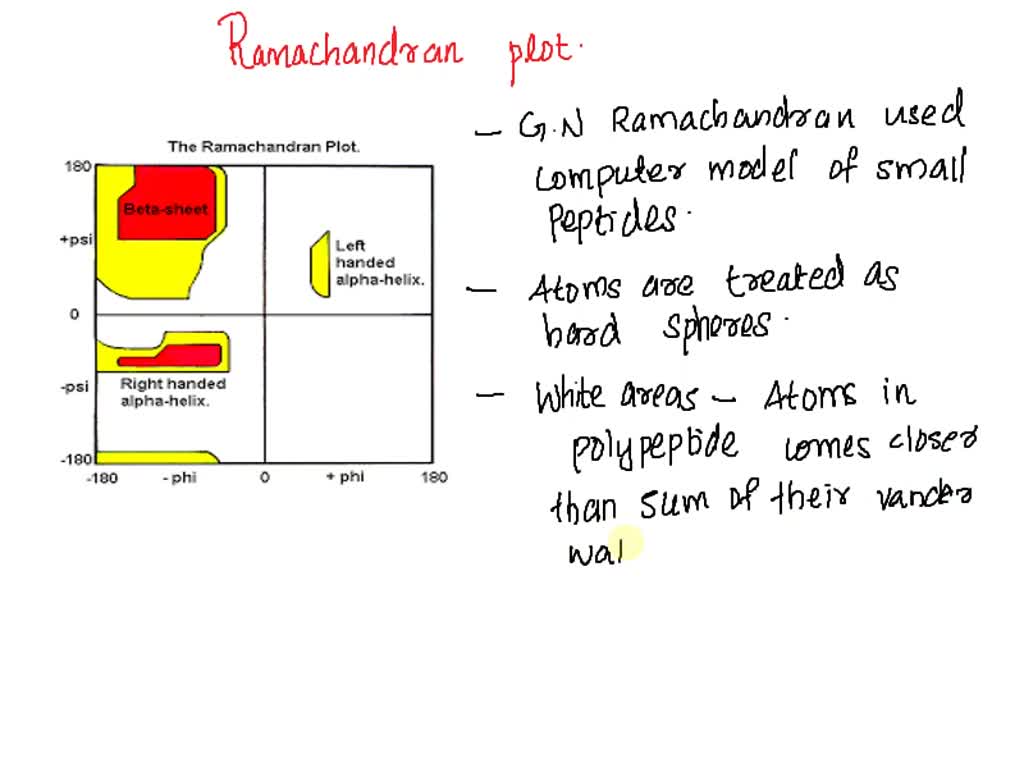 Ramachandran plot.
The Ramachandran Plot.
180
Beta-sheet
+psi
Left
handed
alpha-helix.
0
-psi
Right handed
alpha-helix.
-180
-180 - phi 0 + phi 180
- G.N Ramachandran used
computer model of small
Peptides.
- Atoms are treated as
hard spheres.
- White areas - Atoms in
polypeptide comes closer
than sum of their vander
wal